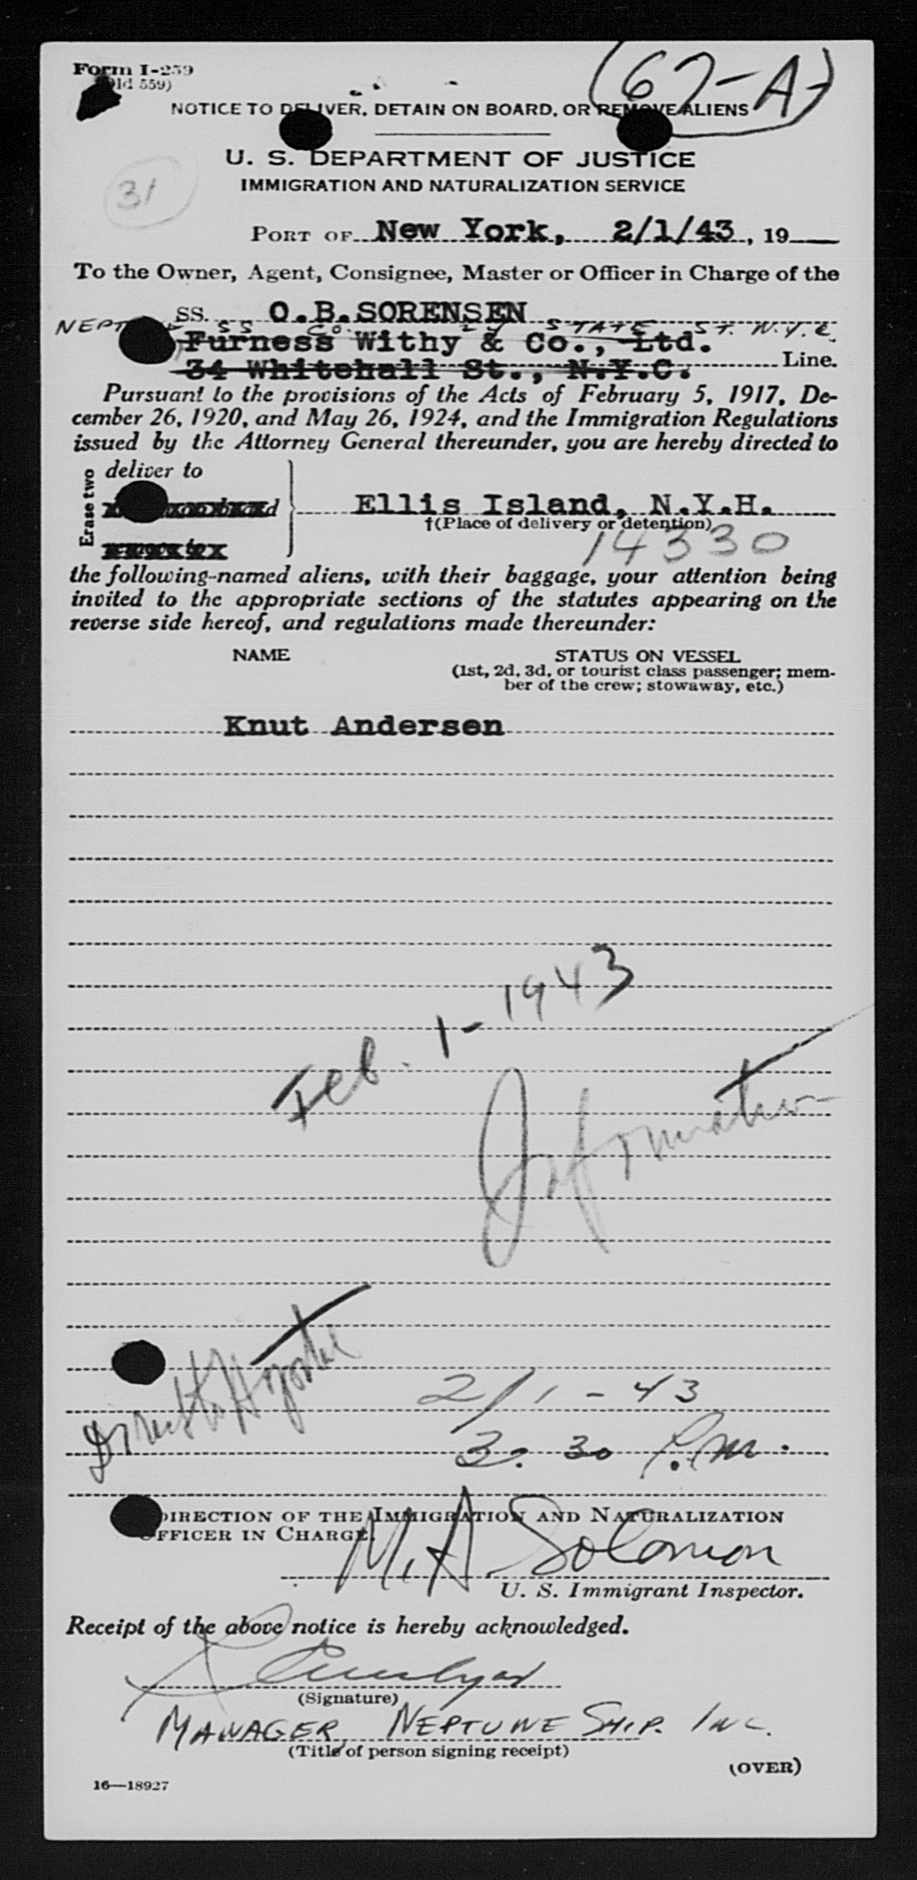 Form I-259
(Old 559)
(67-A)
NOTICE TO DELIVER, DETAIN ON BOARD, OR REMOVE ALIENS
U. S. DEPARTMENT OF JUSTICE
IMMIGRATION AND NATURALIZATION SERVICE
31
PORT OF New York, 2/1/43, 19
To the Owner, Agent, Consignee, Master or Officer in Charge of the
SS. O.B.SORENSEN
NEPTUNE SS CO. 24 STATE ST. N.Y.C.
Furness Withy & Co., Ltd.
34 Whitehall St., N.Y.C. Line.
Pursuant to the provisions of the Acts of February 5, 1917, De-
cember 26, 1920, and May 26, 1924, and the Immigration Regulations
issued by the Attorney General thereunder, you are hereby directed to
Erase two
deliver to
Ellis Island, N.Y.H.
†(Place of delivery or detention)
14330
the following-named aliens, with their baggage, your attention being
invited to the appropriate sections of the statutes appearing on the
reverse side hereof, and regulations made thereunder:
NAME STATUS ON VESSEL
(1st, 2d, 3d, or tourist class passenger; mem-
ber of the crew; stowaway, etc.)
Knut Andersen
Feb. 1-1943
Information
2/1-43
3:30 P.M.
DIRECTION OF THE IMMIGRATION AND NATURALIZATION
OFFICER IN CHARGE.
M. A. Solomon
U. S. Immigrant Inspector.
Receipt of the above notice is hereby acknowledged.
(Signature)
MANAGER NEPTUNE SHIP. INC.
(Title of person signing receipt)
(OVER)
16—18927